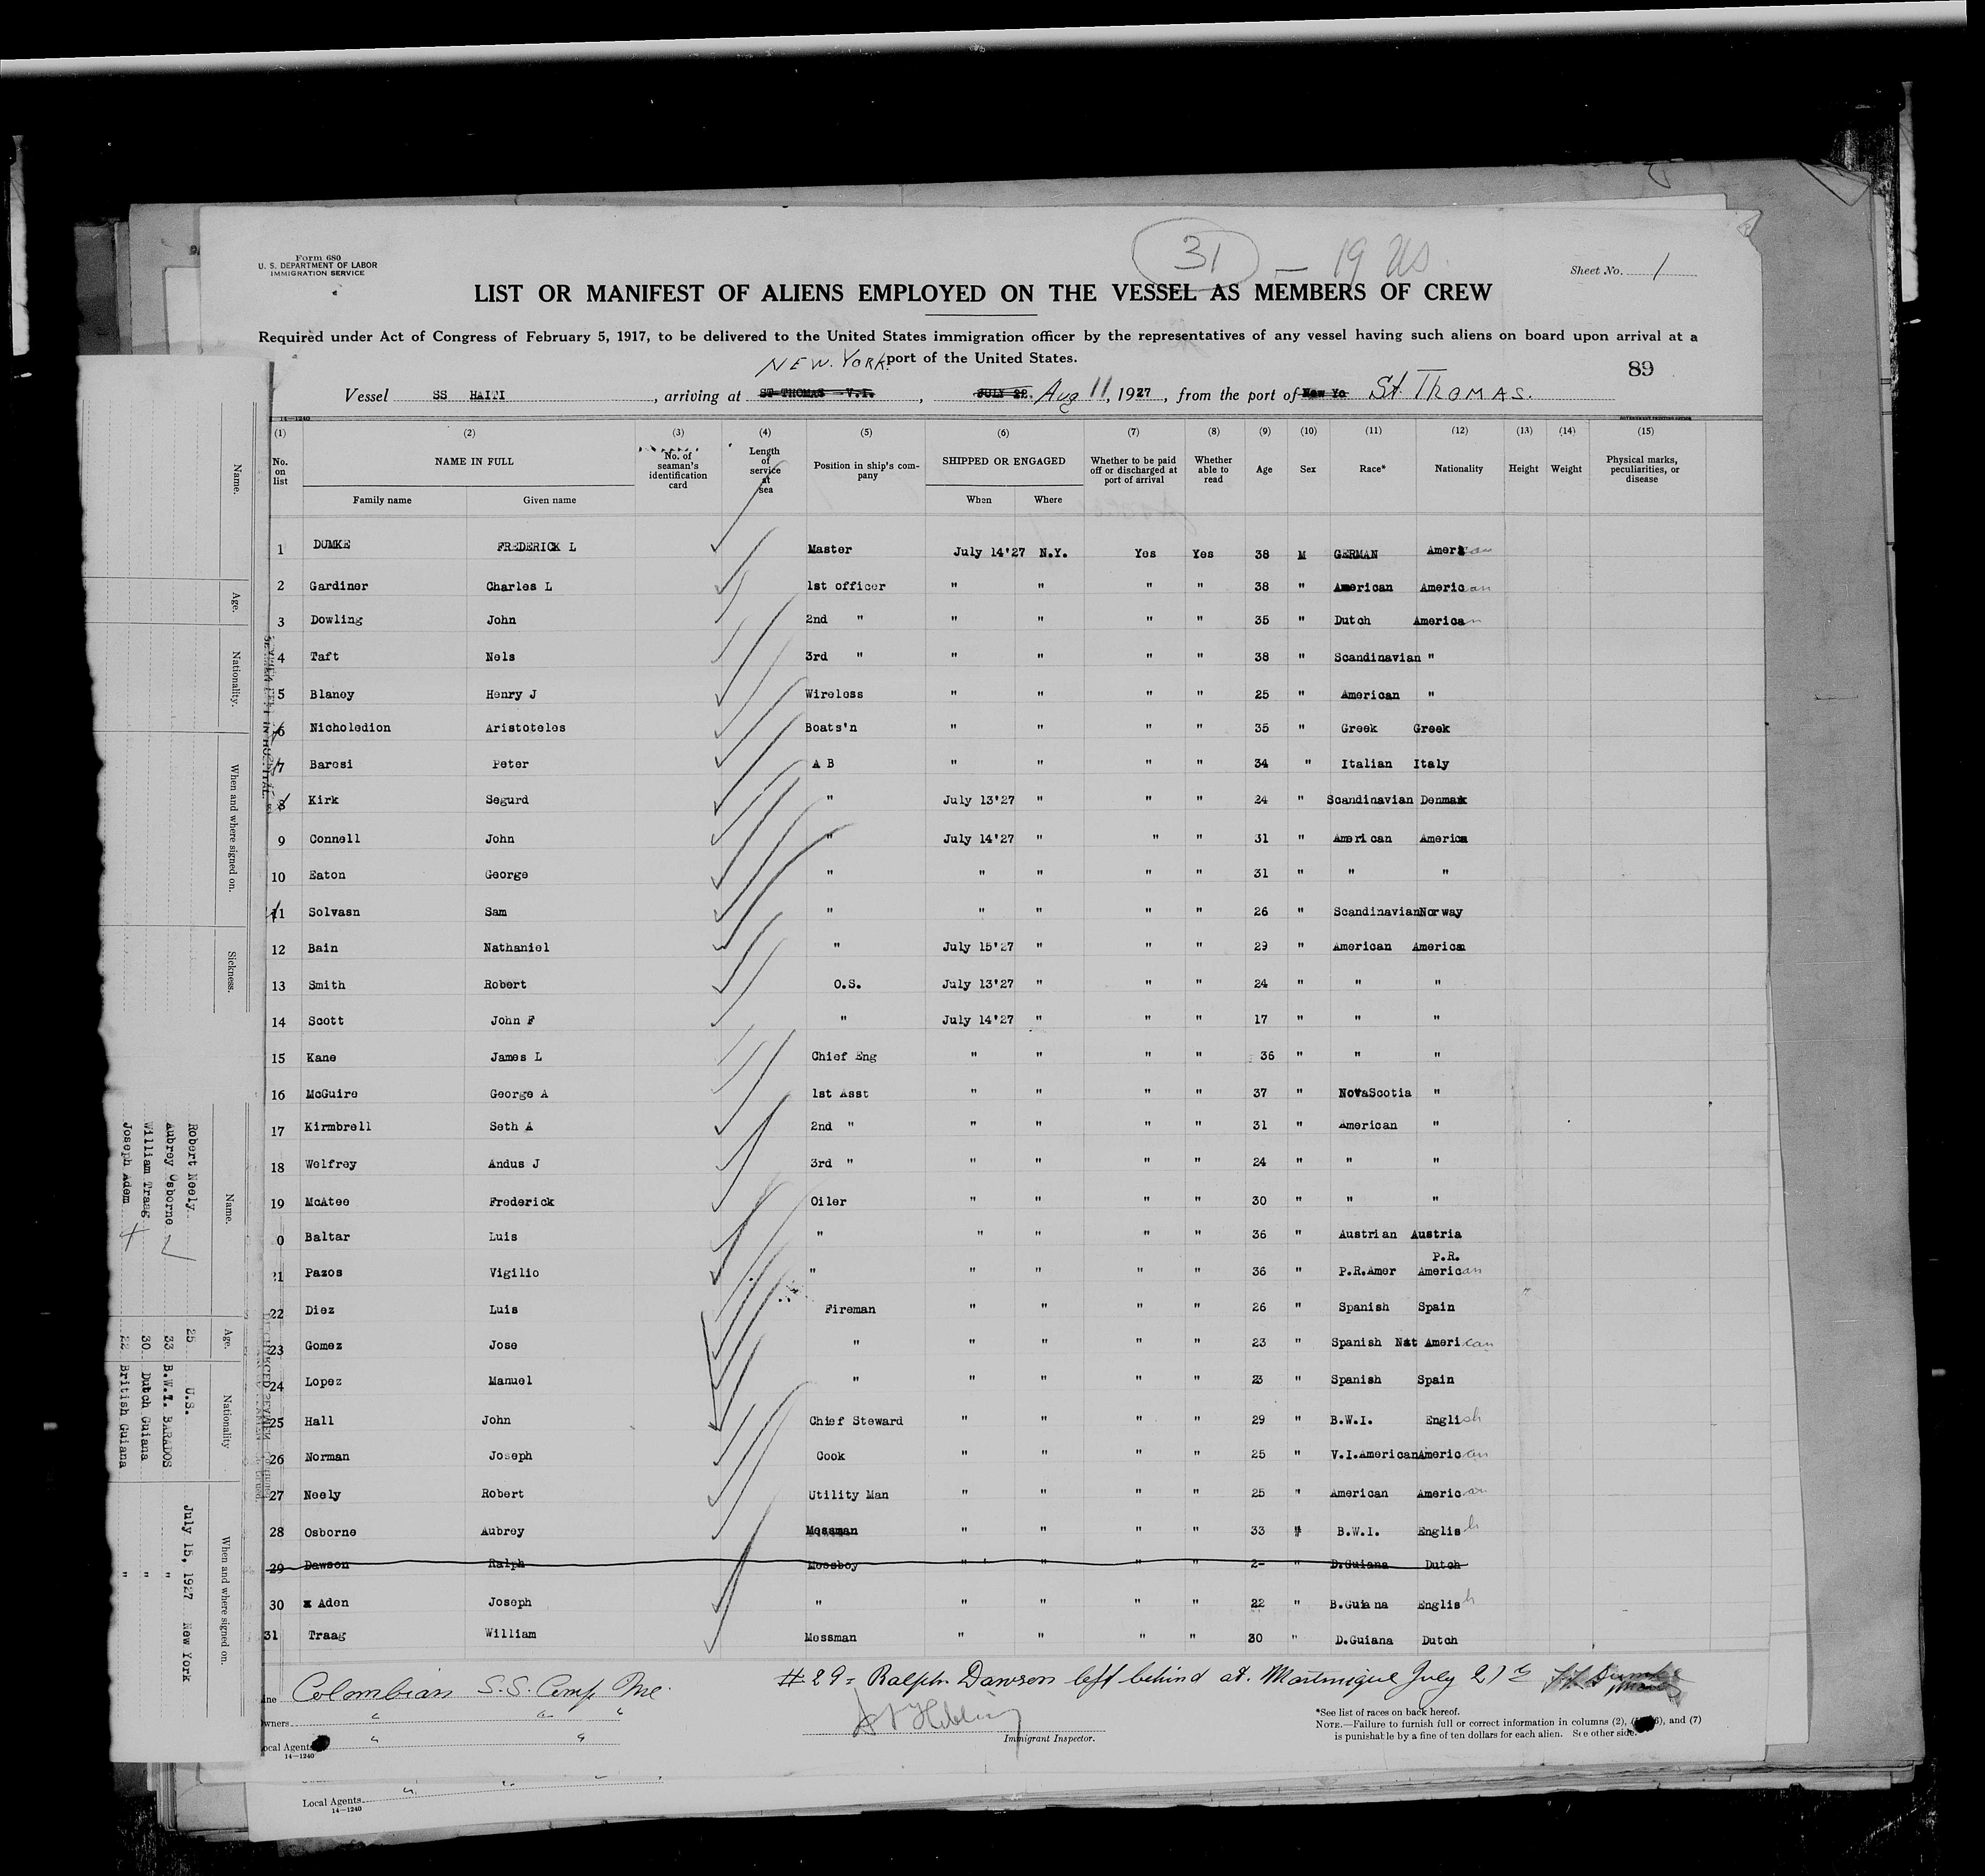 Form 680
U. S. DEPARTMENT OF LABOR
IMMIGRATION SERVICE
31 — 19 US.
Sheet No. 1
LIST OR MANIFEST OF ALIENS EMPLOYED ON THE VESSEL AS MEMBERS OF CREW
Required under Act of Congress of February 5, 1917, to be delivered to the United States immigration officer by the representatives of any vessel having such aliens on board upon arrival at a
port of the United States.
NEW. YORK.
89
Vessel SS HAITI, arriving at ST THOMAS -V.I., JULY 22. Aug 11, 1927, from the port of New Yo St. THOMAS.
14-1240
(1) (2) (3) (4) (5) (6) (7) (8) (9) (10) (11) (12) (13) (14) (15)
No. on list NAME IN FULL No. of seaman's identification card Length of service at sea Position in ship's company SHIPPED OR ENGAGED Whether to be paid off or discharged at port of arrival Whether able to read Age Sex Race* Nationality Height Weight Physical marks, peculiarities, or disease
Family name Given name When Where
1 DUMKE FREDERICK L Master July 14'27 N.Y. Yes Yes 38 M GERMAN American
2 Gardiner Charles L 1st officer " " " " 38 " American American
3 Dowling John 2nd " " " " " 35 " Dutch American
4 Taft Nels 3rd " " " " " 38 " Scandinavian "
5 Blaney Henry J Wireless " " " " 25 " American "
6 Nicholedion Aristoteles Boats'n " " " " 35 " Greek Greek
7 Baresi Peter A B " " " " 34 " Italian Italy
8 Kirk Segurd " July 13'27 " " " 24 " Scandinavian Denmark
9 Connell John " July 14'27 " " " 31 " American America
10 Eaton George " " " " " 31 " " "
11 Solvasn Sam " " " " " 26 " Scandinavian Norway
12 Bain Nathaniel " July 15'27 " " " 29 " American America
13 Smith Robert O.S. July 13'27 " " " 24 " " "
14 Scott John F " July 14'27 " " " 17 " " "
15 Kane James L Chief Eng " " " " 36 " " "
16 McGuire George A 1st Asst " " " " 37 " NovaScotia "
17 Kirmbrell Seth A 2nd " " " " " 31 " American "
18 Welfrey Andus J 3rd " " " " " 24 " " "
19 McAtee Frederick Oiler " " " " 30 " " "
0 Baltar Luis " " " " " 36 " Austrian Austria
21 Pazos Vigilio " " " " " 36 " P.R.Amer P.R. American
22 Diez Luis Fireman " " " " 26 " Spanish Spain
23 Gomez Jose " " " " " 23 " Spanish Nat American
24 Lopez Manuel " " " " " 23 " Spanish Spain
25 Hall John Chief Steward " " " " 29 " B.W.I. English
26 Norman Joseph Cook " " " " 25 " V.I.American American
27 Neely Robert Utility Man " " " " 25 " American American
28 Osborne Aubrey Messman " " " " 33 " B.W.I. English
29 Dawson Ralph Messboy " " " " 2- " D.Guiana Dutch
30 x Aden Joseph " " " " " 22 " B.Guiana English
31 Traag William Messman " " " " 30 " D.Guiana Dutch
Line Colombian S.S. Comp Inc.
#29= Ralph Dawson left behind at. Martinique July 27th
Owners " " "
Local Agents " "
14-1240
Immigrant Inspector.
*See list of races on back hereof.
NOTE.—Failure to furnish full or correct information in columns (2), (6), and (7)
is punishable by a fine of ten dollars for each alien. See other side.
Local Agents
14-1240
Name. Age. Nationality. When and where signed on. Sickness.
Name. Age. Nationality When and where signed on.
Robert Neely 25 U.S. July 15, 1927 New York
Aubrey Osborne 33 B.W.I. BARADOS "
William Traag 30 Dutch Guiana "
Joseph Adem 22 British Guiana "